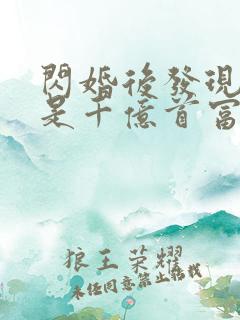 閃婚後發現
是千億首富
狼王榮耀
未经同意禁止转载